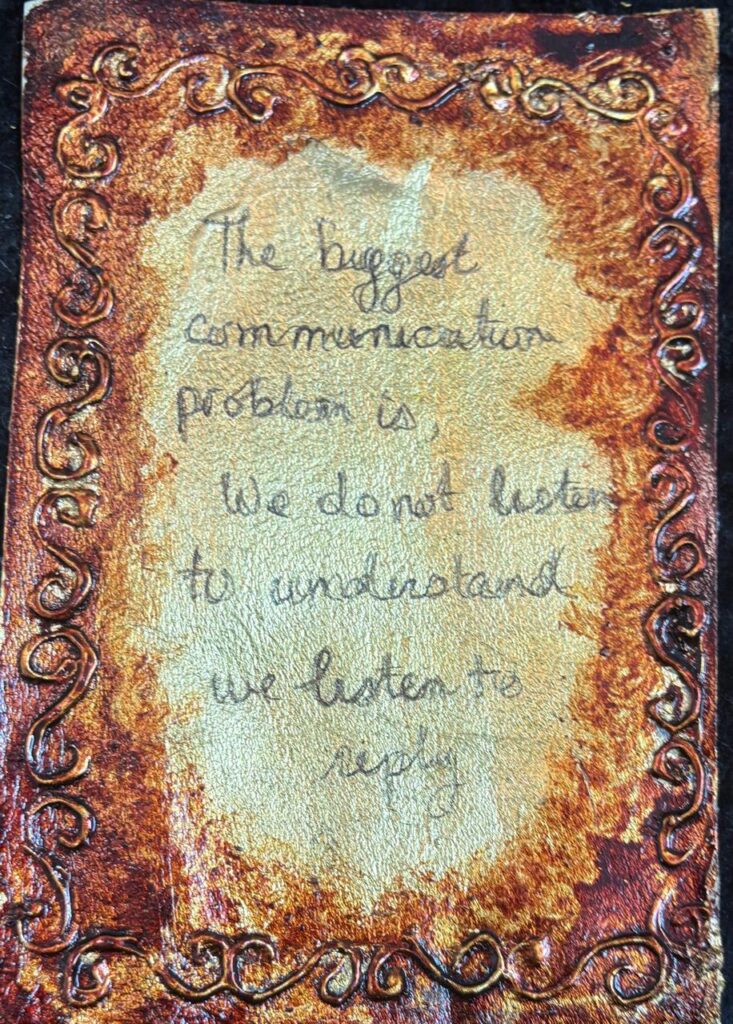 The biggest
communication
problem is,
We do not listen
to understand
we listen to
reply